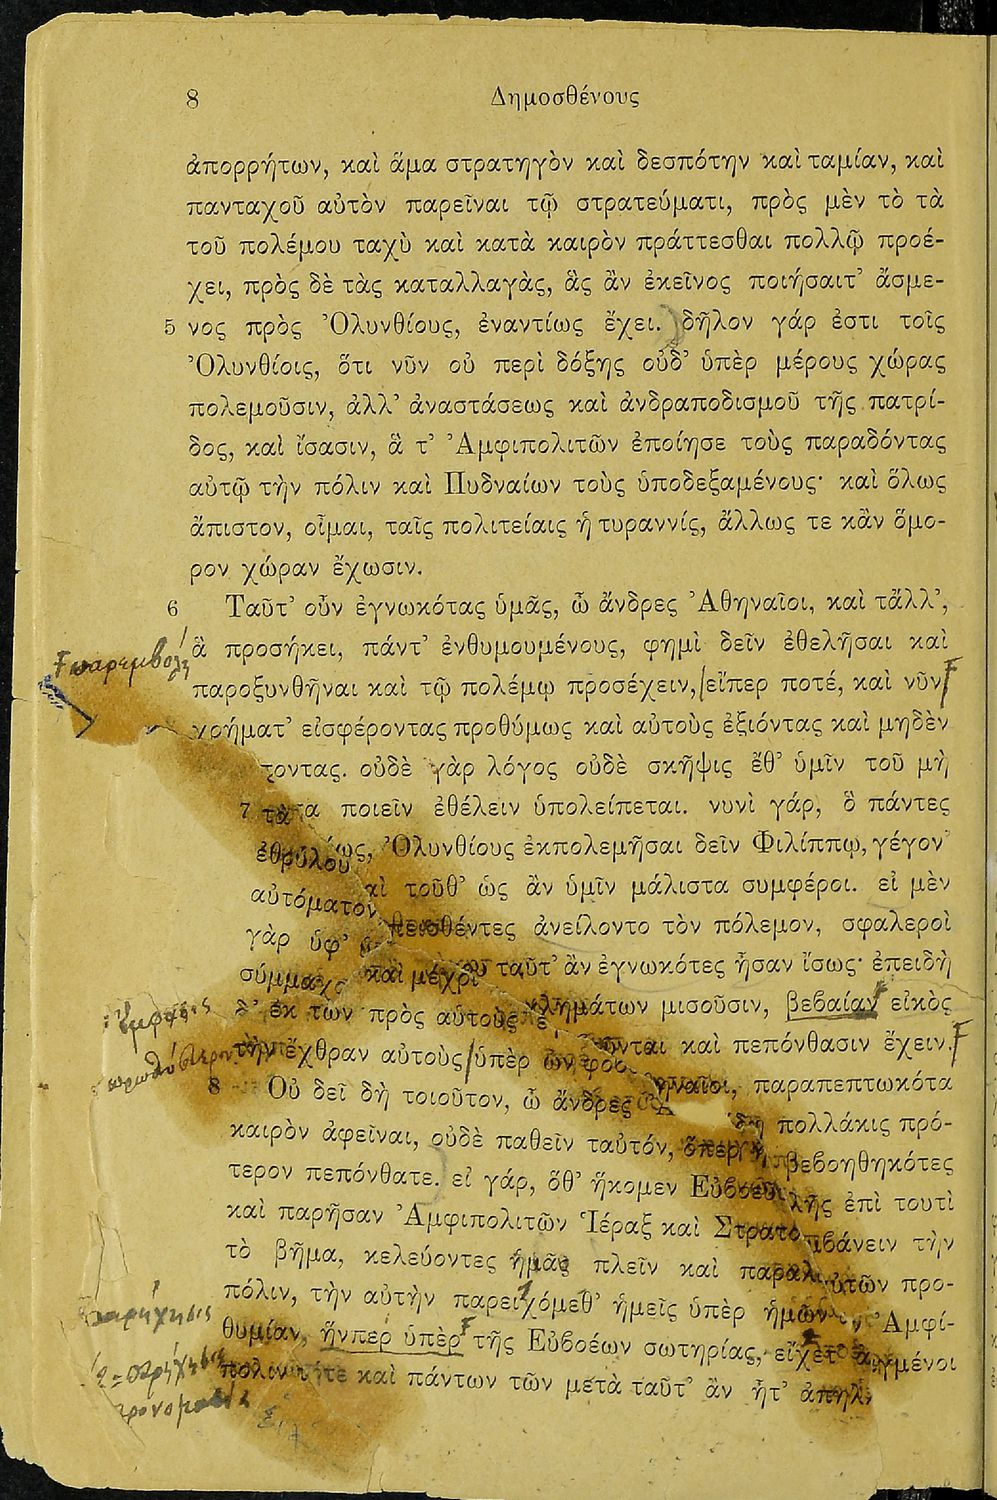 8 Δημοσθένους
ἀπορρήτων, καὶ ἅμα στρατηγὸν καὶ δεσπότην καὶ ταμίαν, καὶ
πανταχοῦ αὐτὸν παρεῖναι τῷ στρατεύματι, πρὸς μὲν τὸ τὰ
τοῦ πολέμου ταχὺ καὶ κατὰ καιρὸν πράττεσθαι πολλῷ προέ-
χει, πρὸς δὲ τὰς καταλλαγὰς, ἃς ἂν ἐκεῖνος ποιήσαιτ’ ἄσμε-
5 νος πρὸς Ὀλυνθίους, ἐναντίως ἔχει. δῆλον γάρ ἐστι τοῖς
Ὀλυνθίοις, ὅτι νῦν οὐ περὶ δόξης οὐδ’ ὑπὲρ μέρους χώρας
πολεμοῦσιν, ἀλλ’ ἀναστάσεως καὶ ἀνδραποδισμοῦ τῆς πατρί-
δος, καὶ ἴσασιν, ἅ τ’ Ἀμφιπολιτῶν ἐποίησε τοὺς παραδόντας
αὐτῷ τὴν πόλιν καὶ Πυδναίων τοὺς ὑποδεξαμένους· καὶ ὅλως
ἄπιστον, οἶμαι, ταῖς πολιτείαις ἡ τυραννίς, ἄλλως τε κἂν ὅμο-
ρον χώραν ἔχωσιν.
6 Ταῦτ’ οὖν ἐγνωκότας ὑμᾶς, ὦ ἄνδρες Ἀθηναῖοι, καὶ τἄλλ’,
ἃ προσήκει, πάντ’ ἐνθυμουμένους, φημὶ δεῖν ἐθελῆσαι καὶ
παρεμβολή
παροξυνθῆναι καὶ τῷ πολέμῳ προσέχειν, εἴπερ ποτέ, καὶ νῦν
χρήματ’ εἰσφέροντας προθύμως καὶ αὐτοὺς ἐξιόντας καὶ μηδὲν
οὐδὲ γὰρ λόγος οὐδὲ σκῆψις ἔθ’ ὑμῖν τοῦ μὴ
7 τὰ ποιεῖν ἐθέλειν ὑπολείπεται. νυνὶ γάρ, ὃ πάντες
ἐθρύλου Ὀλυνθίους ἐκπολεμῆσαι δεῖν Φιλίππῳ, γέγον’
αὐτόματον τοῦθ’ ὡς ἂν ὑμῖν μάλιστα συμφέροι. εἰ μὲν
γὰρ ὑφ’ πεισθέντες ἀνείλοντο τὸν πόλεμον, σφαλεροὶ
σύμμαχο καὶ μέχρι ταῦτ’ ἂν ἐγνωκότες ἦσαν ἴσως· ἐπειδὴ
δ’ ἐκ τῶν πρὸς αὑτοὺς μισοῦσιν, βεβαίαν εἰκὸς
τὴν ἔχθραν αὐτοὺς ὑπὲρ ὧν καὶ πεπόνθασιν ἔχειν.
8 Οὐ δεῖ δὴ τοιοῦτον, ὦ ἄνδρες παραπεπτωκότα
καιρὸν ἀφεῖναι, οὐδὲ παθεῖν ταὐτόν, ὅπερ πολλάκις πρό-
τερον πεπόνθατε. εἰ γάρ, ὅθ’ ἥκομεν βεβοηθηκότες
καὶ παρῆσαν Ἀμφιπολιτῶν Ἱέραξ καὶ Στρατο ἐπὶ τουτὶ
τὸ βῆμα, κελεύοντες ἡμᾶς πλεῖν καὶ τὴν
πόλιν, τὴν αὐτὴν παρειχόμεθ’ ἡμεῖς ὑπὲρ ἡμῶν προ-
παρήχησις
θυμίαν, ἥνπερ ὑπὲρ τῆς Εὐβοέων σωτηρίας, εἴχετ’ Ἀμφί-
πολιν τότε καὶ πάντων τῶν μετὰ ταῦτ’ ἂν ἦτ’